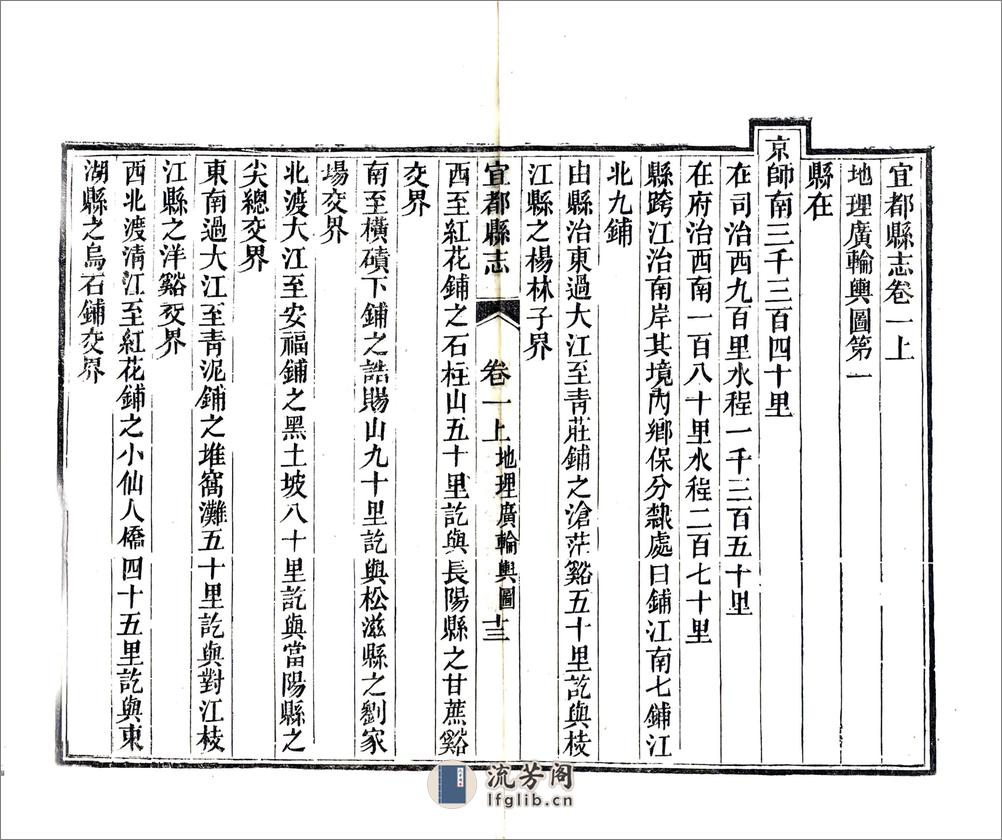 宜都縣志卷一上
地理廣輪輿圖第一
縣在
京師南三千三百四十里
在司治西九百里水程一千三百五十里
在府治西南一百八十里水程二百七十里
縣跨江治南岸其境內鄉保分隸處曰鋪江南七鋪江
北九鋪
由縣治東過大江至青莊鋪之滄茫谿五十里訖與枝
江縣之楊林子界
宜都縣志 卷一上 地理廣輪輿圖 十三
西至紅花鋪之石柱山五十里訖與長陽縣之甘蔗谿
交界
南至橫磧下鋪之誥賜山九十里訖與松滋縣之劉家
場交界
北渡大江至安福鋪之黑土坡八十里訖與當陽縣之
尖總交界
東南過大江至青泥鋪之堆窩灘五十里訖與對江枝
江縣之洋谿交界
西北渡清江至紅花鋪之小仙人橋四十五里訖與東
湖縣之烏石鋪交界
流芳阁
lfglib.cn